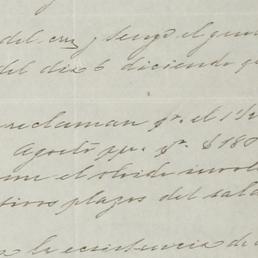 del crrs y tengo el gus
del dia 6 diciendo q
reclaman pr. el 1½
Agosto ppu. pr. $180
me el olvido invol
tivos plazos del sal
a la existencia de